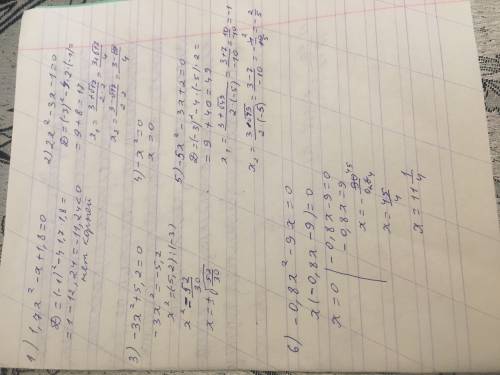 1) 1,7x² - x + 1,8 = 0
D = (-1)² - 4·1,7·1,8 =
= 1 - 12,24 = -11,24 < 0
нет корней
2) 2x² - 3x - 1 = 0
D = (-3)² - 4·2·(-1) =
= 9 + 8 = 17
x₁ = (3+√17)/(2·2) = (3+√17)/4
x₂ = (3-√17)/(2·2) = (3-√17)/4
3) -3x² + 5,2 = 0
-3x² = -5,2
x² = (-5,2):(-3)
x² = 52/30
x = ±√(52/30)
4) -x² = 0
x = 0
5) -5x² - 3x + 2 = 0
D = (-3)² - 4·(-5)·2 =
= 9 + 40 = 49
x₁ = (3+√49)/(2·(-5)) = (3+7)/(-10) = 10/10 = -1
x₂ = (3-√49)/(2·(-5)) = (3-7)/(-10) = -4/10 = -2/5
6) -0,8x² - 9x = 0
x(-0,8x - 9) = 0
x = 0 | -0,8x - 9 = 0
-0,8x = 9
x = -90/0,8
x = 45/4
x = 11 1/4